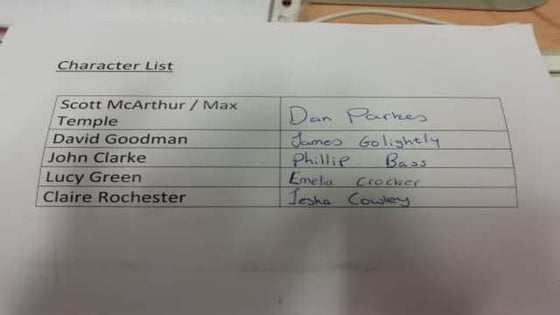 Character List
Scott McArthur / Max
Temple
Dan Parkes
David Goodman
James Golightly
John Clarke
Phillip Bass
Lucy Green
Emelia Crocker
Claire Rochester
Iesha Cowley